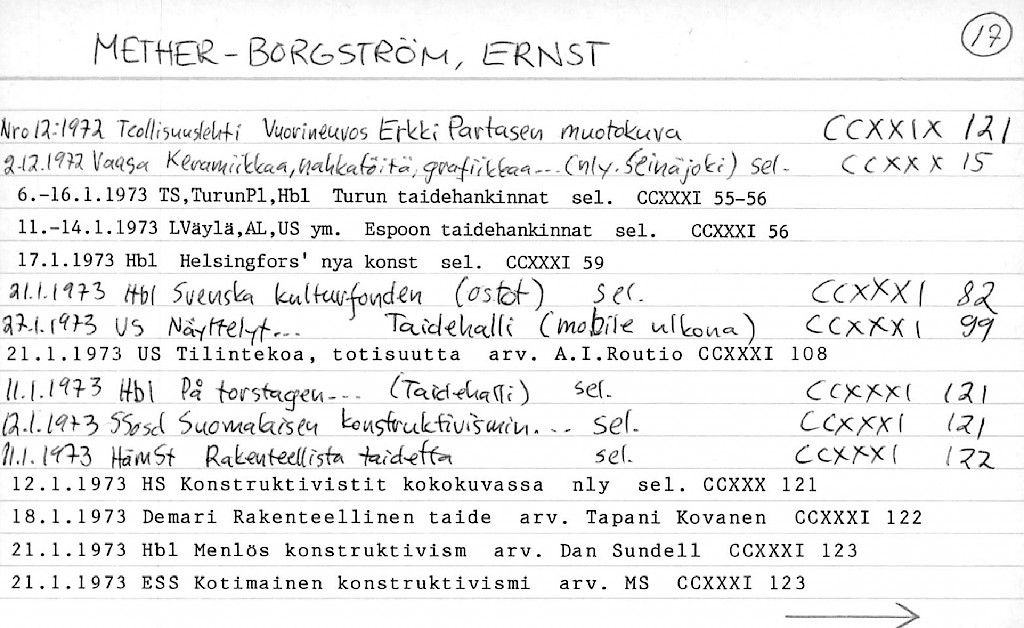 METHER-BORGSTRÖM, ERNST 17
Nro 12:1972 Teollisuuslehti Vuorineuvos Erkki Partasen muotokuva CCXXIX 121
2.12.1972 Vaasa Keramiikkaa, nahkatöitä, grafiikkaa... (nly. Seinäjoki) sel. CCXXX 15
6.-16.1.1973 TS,TurunPl,Hbl Turun taidehankinnat sel. CCXXXI 55-56
11.-14.1.1973 LVäylä,AL,US ym. Espoon taidehankinnat sel. CCXXXI 56
17.1.1973 Hbl Helsingfors' nya konst sel. CCXXXI 59
21.1.1973 Hbl Svenska kulturfonden (ostot) sel. CCXXXI 82
27.1.1973 US Näyttelyt... Taidehalli (mobile ulkona) CCXXXI 99
21.1.1973 US Tilintekoa, totisuutta arv. A.I.Routio CCXXXI 108
11.1.1973 Hbl På torstagen... (Taidehalli) sel. CCXXXI 121
12.1.1973 SSosd Suomalaisen konstruktivismin... sel. CCXXXI 121
11.1.1973 HämSt Rakenteellista taidetta sel. CCXXXI 122
12.1.1973 HS Konstruktivistit kokokuvassa nly sel. CCXXX 121
18.1.1973 Demari Rakenteellinen taide arv. Tapani Kovanen CCXXXI 122
21.1.1973 Hbl Menlös konstruktivism arv. Dan Sundell CCXXXI 123
21.1.1973 ESS Kotimainen konstruktivismi arv. MS CCXXXI 123